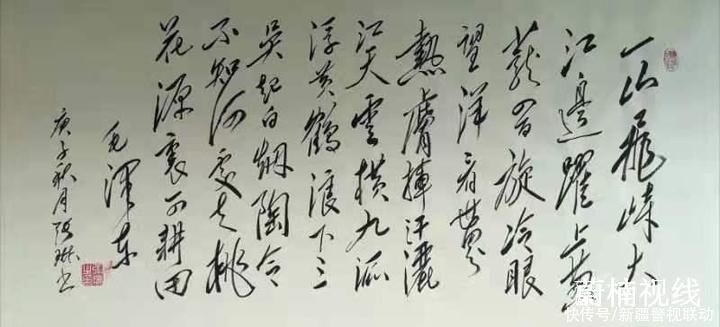 一山飛峙大
江邊躍上葱
蘢四百旋冷眼
望洋看世界
熱膚揮汗灑
江天雲橫九派
浮黃鶴浪下三
吳起白烟陶令
不知何處去桃
花源裏可耕田
毛澤東
庚子秋月
蔚楠视线
快传号/新疆警视联动